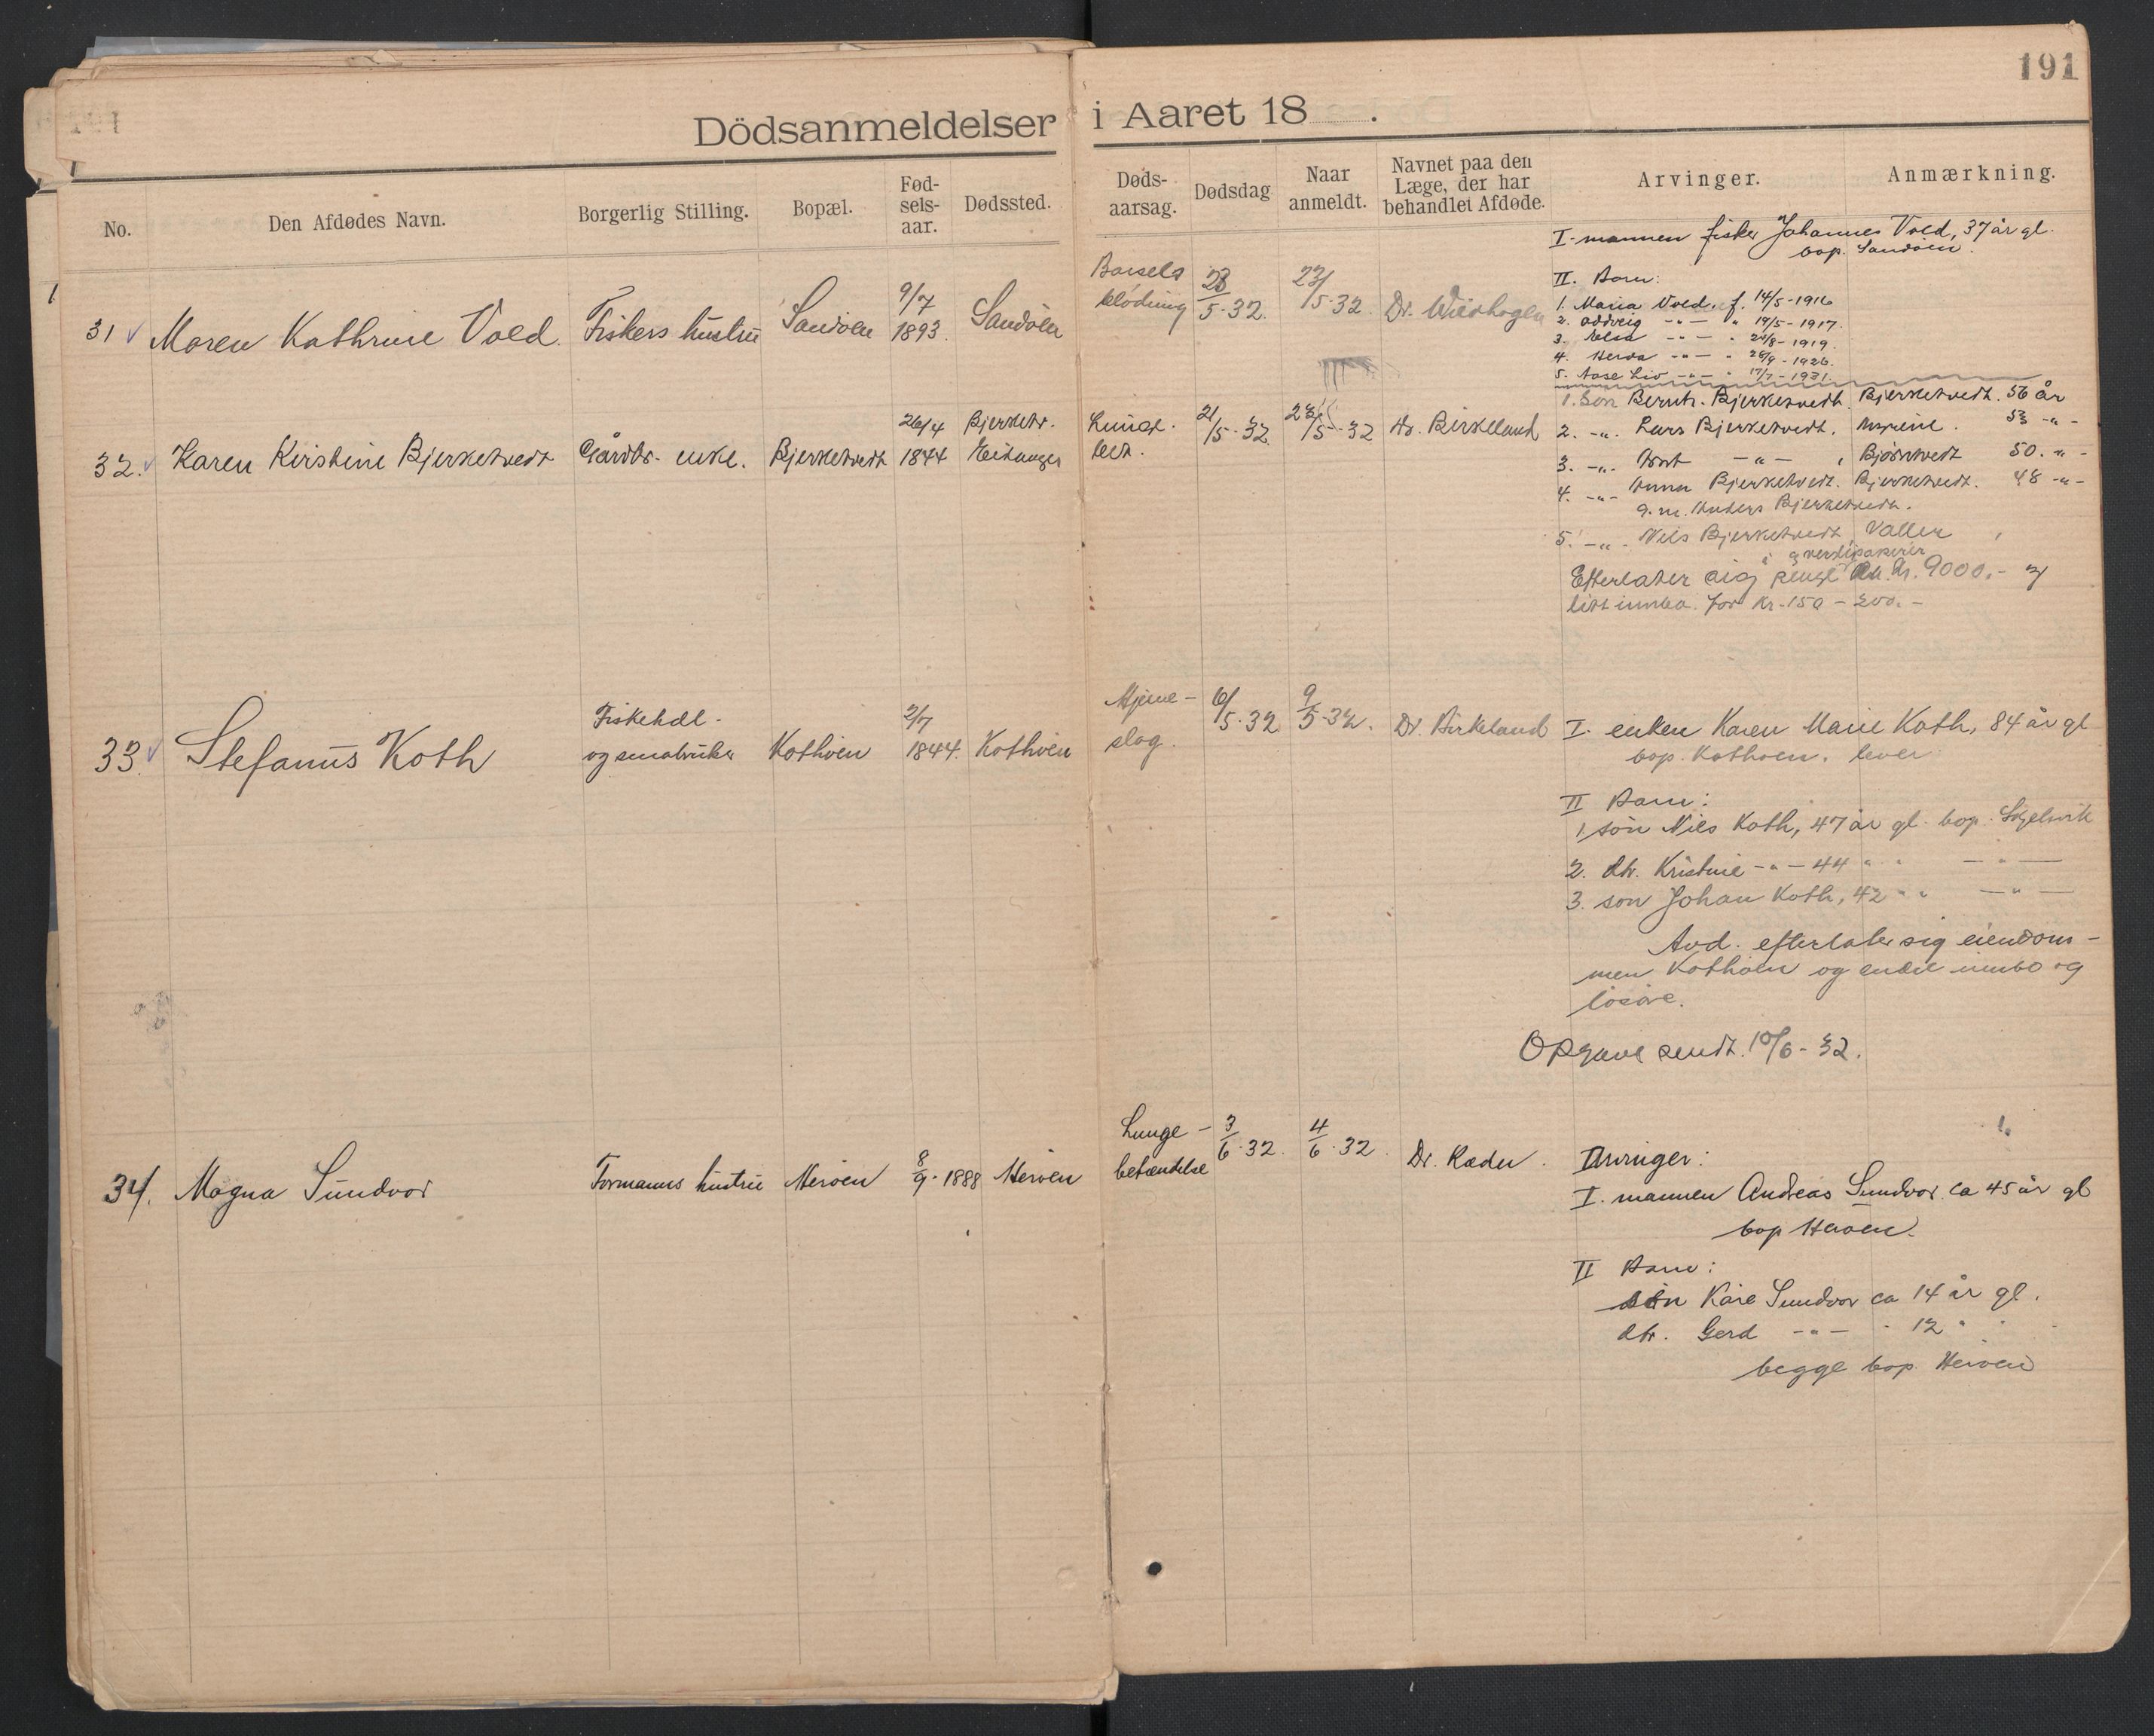 191
Dödsanmeldelser i Aaret 18 .
No.
Den Afdødes Navn.
Borgerlig Stilling.
Bopæl.
Fød-
sels-
aar.
Dødssted.
Døds-
aarsag.
Dødsdag
Naar
anmeldt.
Navnet paa den
Læge, der har
behandlet Afdøde.
Arvinger.
Anmærkning.
31 Maren Kathrine Vold. Fiskers hustru Sandöen 9/7 1893. Sandöen
Barsels
blödning
23/5-32. 23/5-32. Dr.
I. mannen fisker Johannes Vold, 37 år gl.
bop. Sandöen.
II. Barn:
1. Maria Vold, f. 14/5-1916
2. Oddveig -"- " 19/5-1917.
3. Elsa -"- " 24/8-1919.
4. Herda -"- " 26/9-1926.
5. Aase Liv -"- " 17/7-1931.
32. Karen Kirstine Bjerketvedt Gårdbr. enke. Bjerketvedt 26/4 1844 Bjerketv.
Eidanger
21/5-32 23/5-32 Dr. Birkeland
1. Sön Bernh. Bjerketvedt. Bjerketvedt. 56 år
2. -"- Lars Bjerketvedt. 53 -"-
3. -"- -"- , Bjørntvedt 50. -"-
4. -"- Anna Bjerketvedt. Bjerketvedt. 48 -"-
g.m. Anders Bjerketvedt.
5. -"- Nils Bjerketvedt, Valler
i
Efterlater sig penge og verdipapirer ca. kr. 9000.- og
litt innbo for kr. 150 - 200.-
33. Stefanus Koth
Fiskehdl.
og småbruker
Kothöen 2/7 1844. Kothöen
Hjerne-
slag.
6/5-32 9/5-32. Dr. Birkeland
I. enken Karen Marie Koth, 84 år gl
bop. Kothöen. lever
II Barn:
1. sön Nils Koth, 47 år gl. bop. Skjelsvik
2. dtr. Kristine -"- 44 " " -"-
3. sön Johan Koth, 42 " " -"-
Avd. efterlater sig eiendom-
men Kothöen og endel innbo og
lösöre.
Opgave sendt. 10/6-32.
34. Magna Sundvor Formanns hustru Heröen 8/9-1888 Heröen
Lunge-
betændelse
3/6-32. 4/6-32. Dr. Ræder.
Arvinger:
I. mannen Andreas Sundvor ca 45 år gl
bop Heröen.
II Barn:
sön Kåre Sundvor ca 14 år gl.
dtr. Gerd -"- " 12 " "
begge bop. Heröen